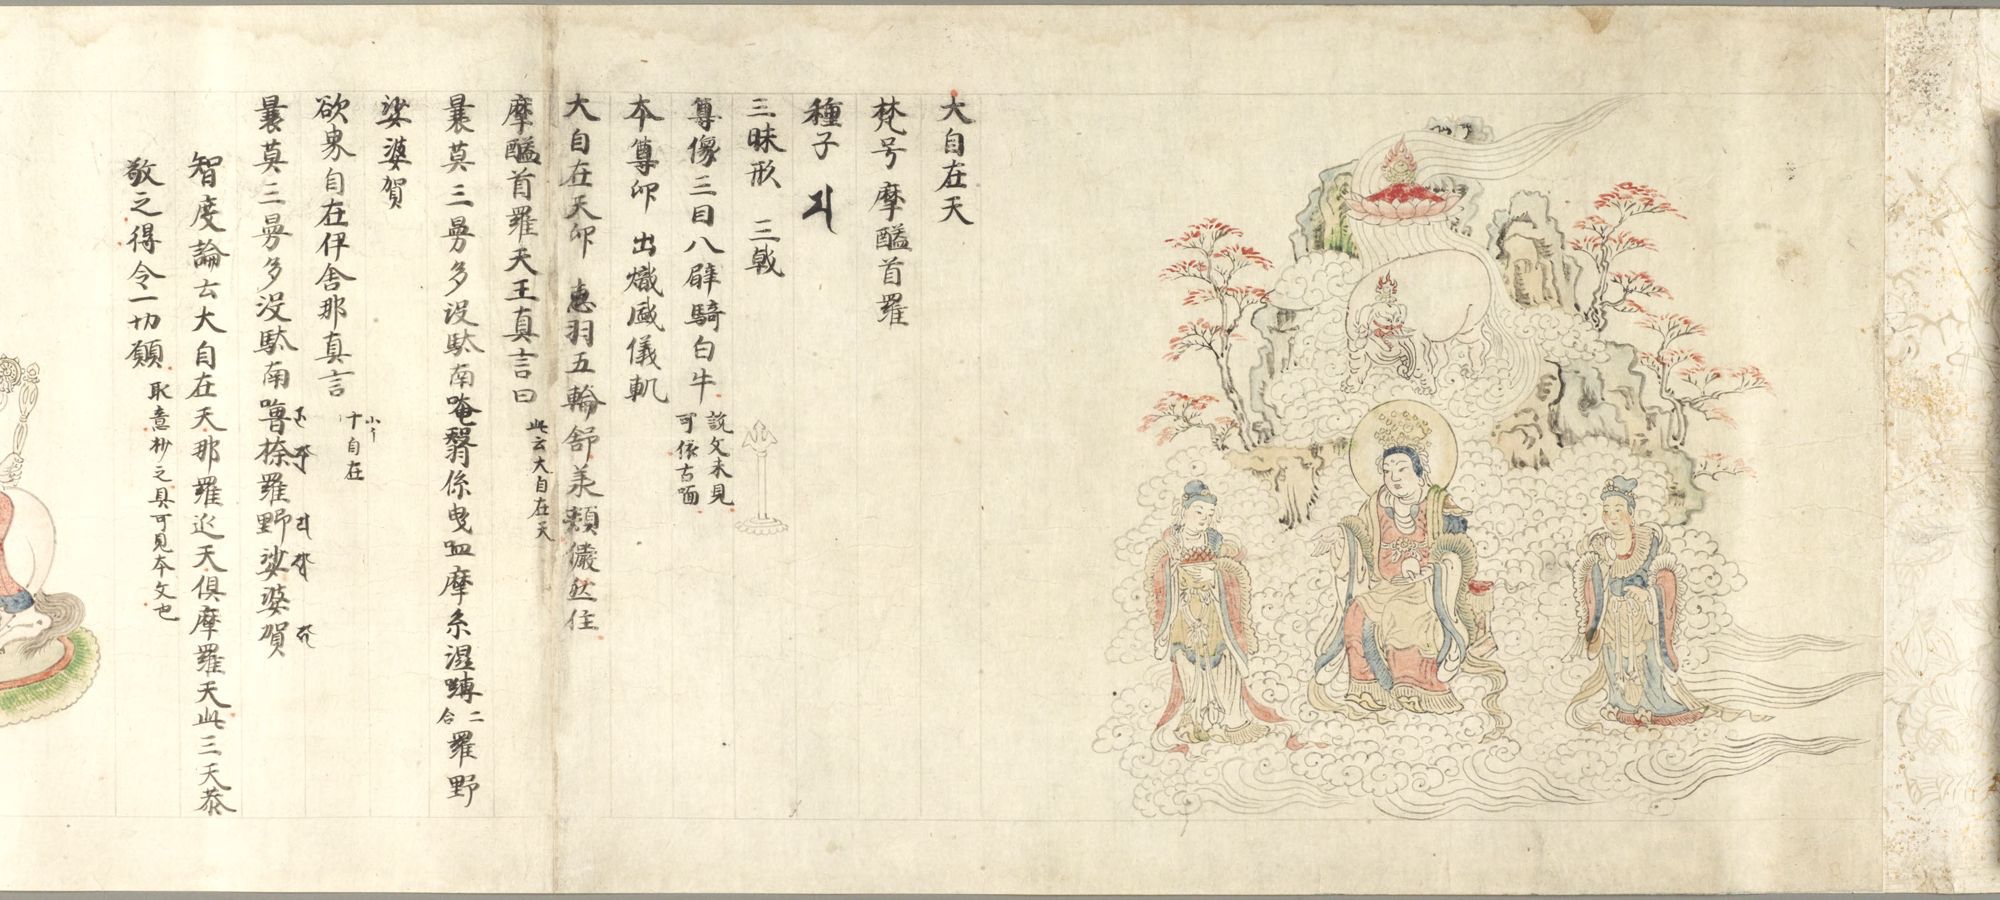 大自在天
梵号 摩醯首羅
種子
三昧形 三戟
尊像三目八臂騎白牛 説文未見
可依古啚
本尊印 出熾盛儀軌
大自在天印 惠羽五輪舒 美頬儼然住
摩醯首羅天王真言曰 此云大自在天
曩莫三曼多没駄南唵翳係曳呬摩系湿嚩二合羅野
娑婆賀
欲界自在伊舎那真言
自在
曩莫三曼多没駄南嚕捺羅野娑婆賀
智度論云大自在天那羅延天倶摩羅天此三天恭
敬之得令一切願 取意抄之具可見本文也